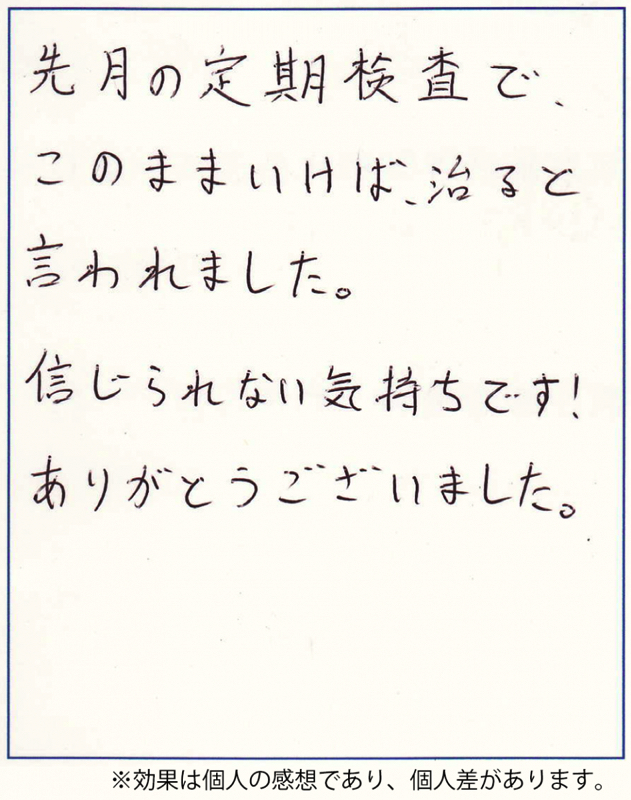 先月の定期検査で、
このままいけば、治ると
言われました。
信じられない気持ちです!
ありがとうございました。
※効果は個人の感想であり、個人差があります。